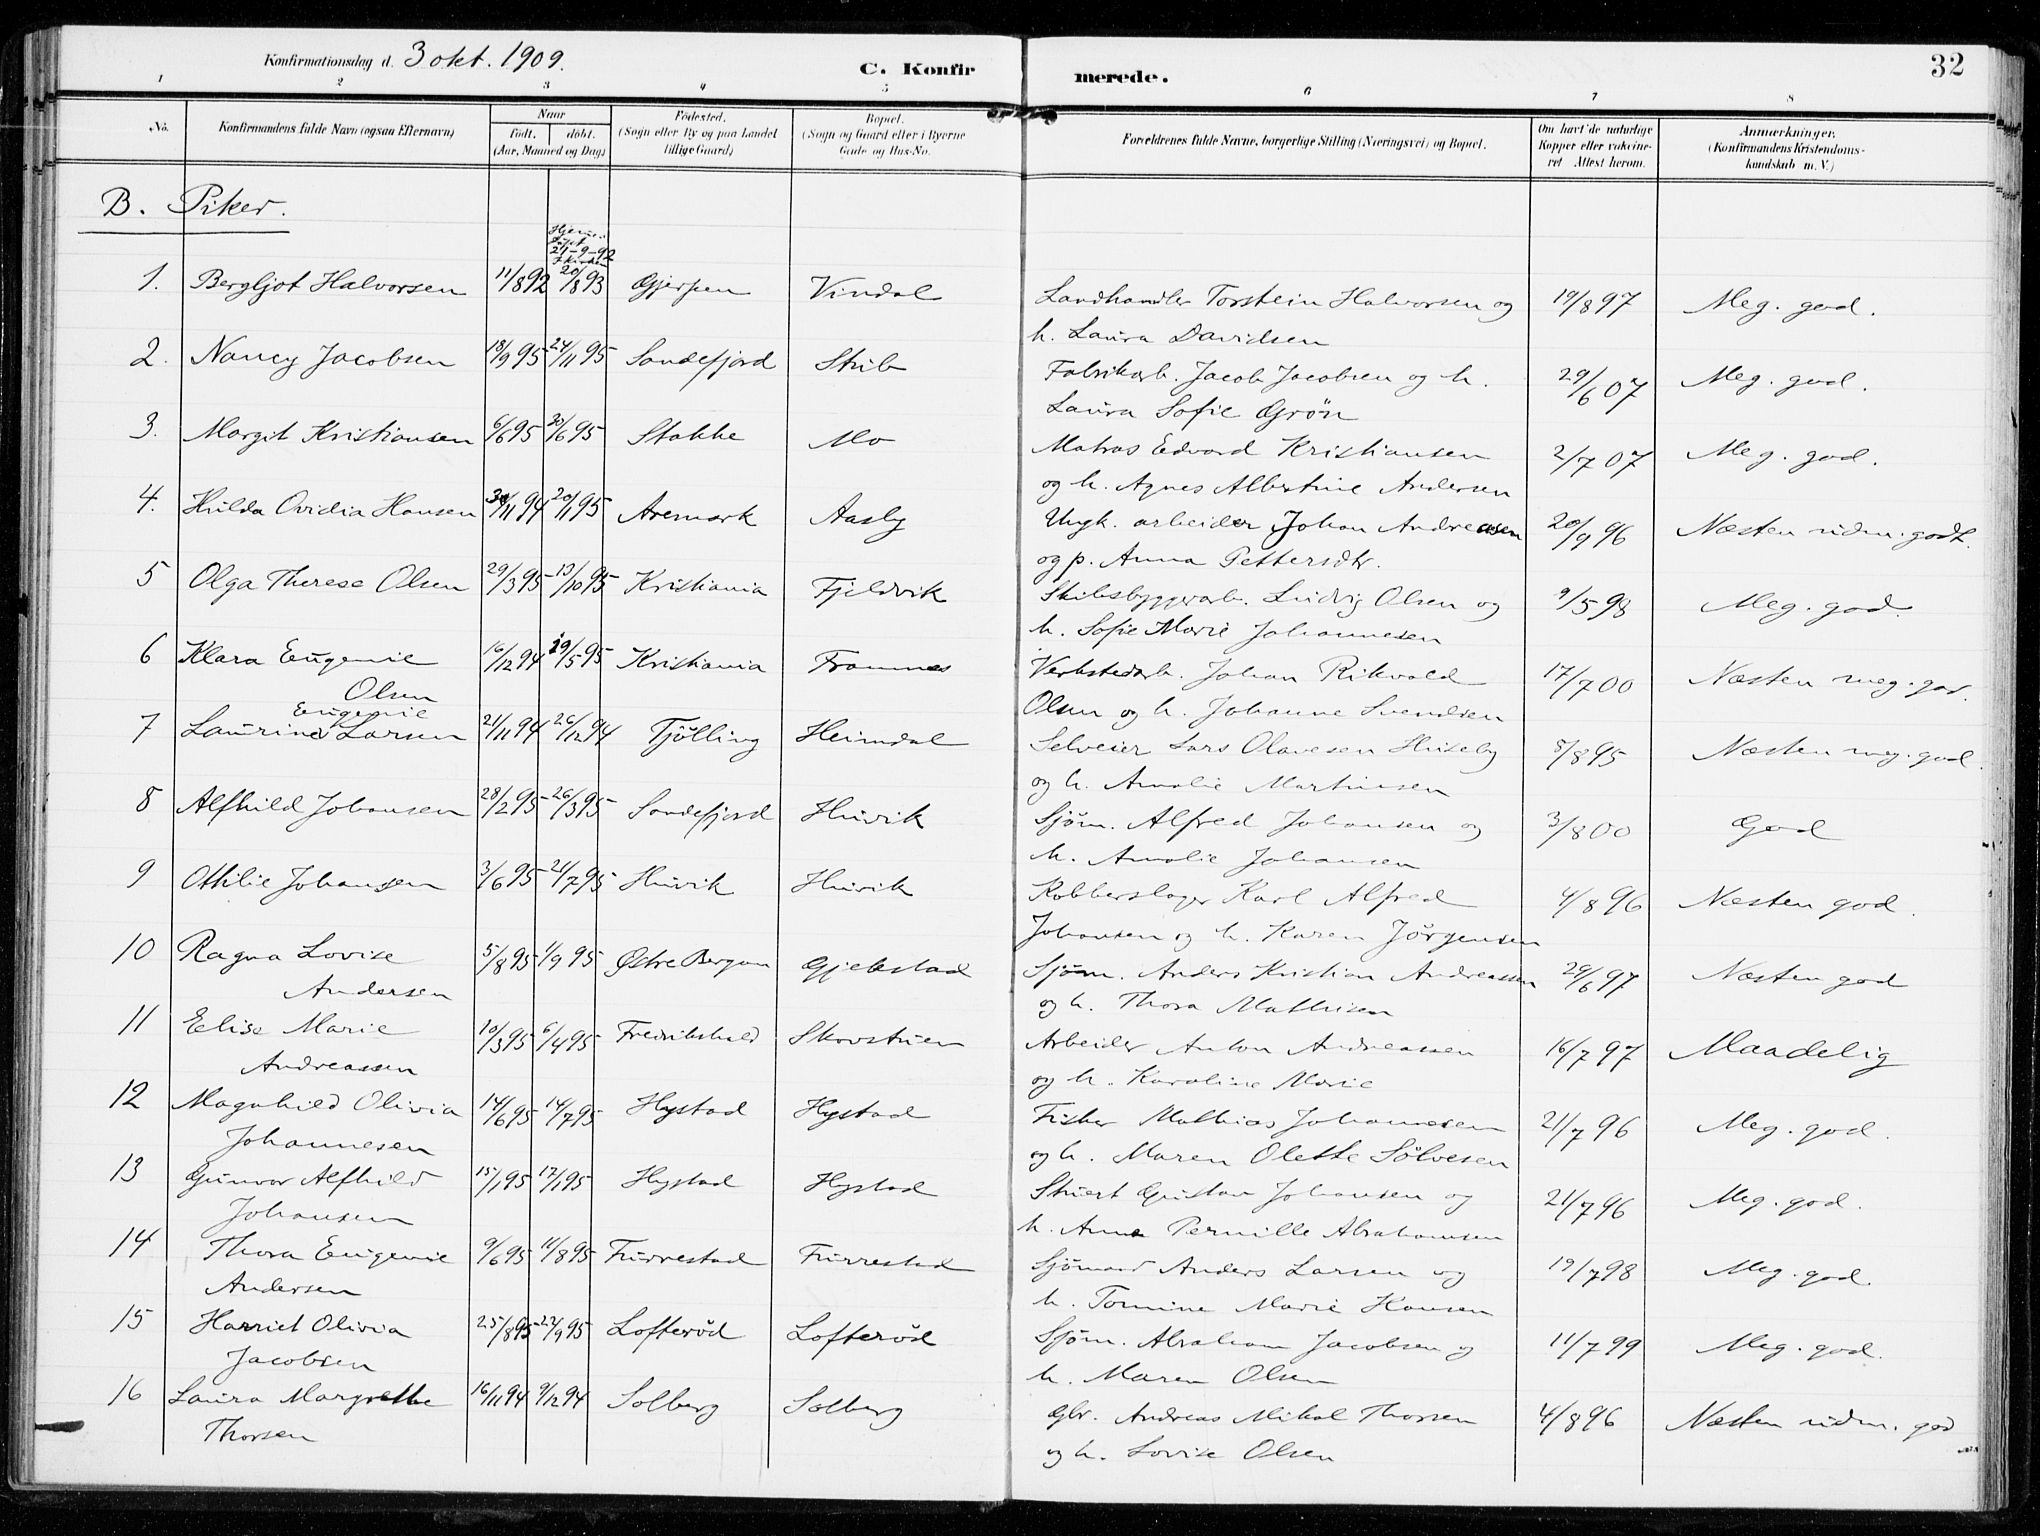 Konfirmationsdag d. 3 okt. 1909.
C. Konfirmerede.
32
1 2 3 4 5 6 7 8
No.
Konfirmandens fulde Navn (ogsaa Efternavn)
Naar
født. døbt.
(Aar, Maaned og Dag)
Fødested.
(Sogn eller By og paa Landet
tillige Gaard)
Bopæl.
(Sogn og Gaard eller i Byerne
Gade og Hus-No.
Forældrenes fulde Navne, borgerlige Stilling (Næringsvei) og Bopæl.
Om havt de naturlige
Kopper eller vakcine-
ret Attest herom.
Anmærkninger.
(Konfirmandens Kristendoms-
kundskab m. V.)
B. Piker.
Hjemme
døpt
21-9-92
1. Bergljot Halvorsen 11/8 92 20/8 93 Gjerpen Vindal Landhandler Torstein Halvorsen og 19/8 97 Meg. god.
h. Laura Davidsen
2. Nancy Jacobsen 18/9 95 24/11 95 Sandefjord Skib Fabrikarb. Jacob Jacobsen og h. 29/6 07 Meg. god.
Laura Sofie Grøn
3. Margit Kristiansen 6/6 95 20/6 95 Stokke Mo Matros Edvard Kristiansen 2/7 07 Meg. god.
og h. Agnes Albertine Andersen
4. Hulda Ovidia Hansen 30/11 94 20/1 95 Aremark Aasly Ungk. arbeider Johan Andreasen 20/9 96 Næsten udm. godt.
og p. Anna Pettersdtr.
5 Olga Therese Olsen 29/3 95 13/10 95 Kristiania Fjeldvik Skibsbyggerarb. Ludvig Olsen og 9/5 98 Meg. god.
h. Sofie Marie Johannesen
6 Klara Eugenie 16/12 94 19/5 95 Kristiania Framnes Verkstedarb. Johan Rikvald 17/7 00 Næsten meg. god.
Olsen
Olsen og h. Johanne Svendsen
Eugenie
7 Laurine Larsen 21/11 94 26/12 94 Tjølling Heimdal Selveier Lars Olavesen Huseby 8/8 95 Næsten meg. god.
og h. Amalie Martinsen
8 Alfhild Johansen 28/2 95 26/3 95 Sandefjord Huvik Sjøm. Alfred Johansen og 3/8 00 God
h. Amalie Johansen
9 Othilie Johansen 3/6 95 21/7 95 Huvik Huvik Kobberslager Karl Alfred 4/8 96 Næsten god.
Johansen og h. Karen Jørgensen
10 Ragna Lovise 5/8 95 1/9 95 Østre Bergan Gjekstad Sjøm. Anders Kristian Andreassen 29/6 97 Næsten god
Andersen
og h. Thora Mathisen
11 Elise Marie 10/3 95 6/4 95 Fredrikshald Skovstuen Arbeider Anton Andreassen 16/7 97 Maadelig
Andreassen
og h. Karoline Marie
12 Magnhild Olivia 14/6 95 14/7 95 Hystad Hystad Fisker Mathias Johannesen 21/7 96 Meg. god.
Johannesen
og h. Maren Olette Sølvesen
13 Gunvor Alfhild 15/1 95 17/1 95 Hystad Hystad Stuert Gustav Johansen og 21/7 96 Meg. god.
Johansen
h. Anna Pernille Abrahamsen
14 Thora Eugenie 9/6 95 11/8 95 Furrestad Furrestad Sjømand Anders Larsen og 19/7 98 Meg. god.
Andersen
h. Tomine Marie Hansen
15 Harriet Olivia 25/8 95 22/9 95 Lofterød Lofterød Sjøm. Abraham Jacobsen og 11/7 99 Meg. god.
Jacobsen
h. Maren Olsen
16 Laura Margrethe 16/11 94 9/12 94 Solberg Solberg Gbr. Andreas Mikal Thorsen 4/8 96 Næsten udm. god
Thorsen
og h. Lovise Olsen